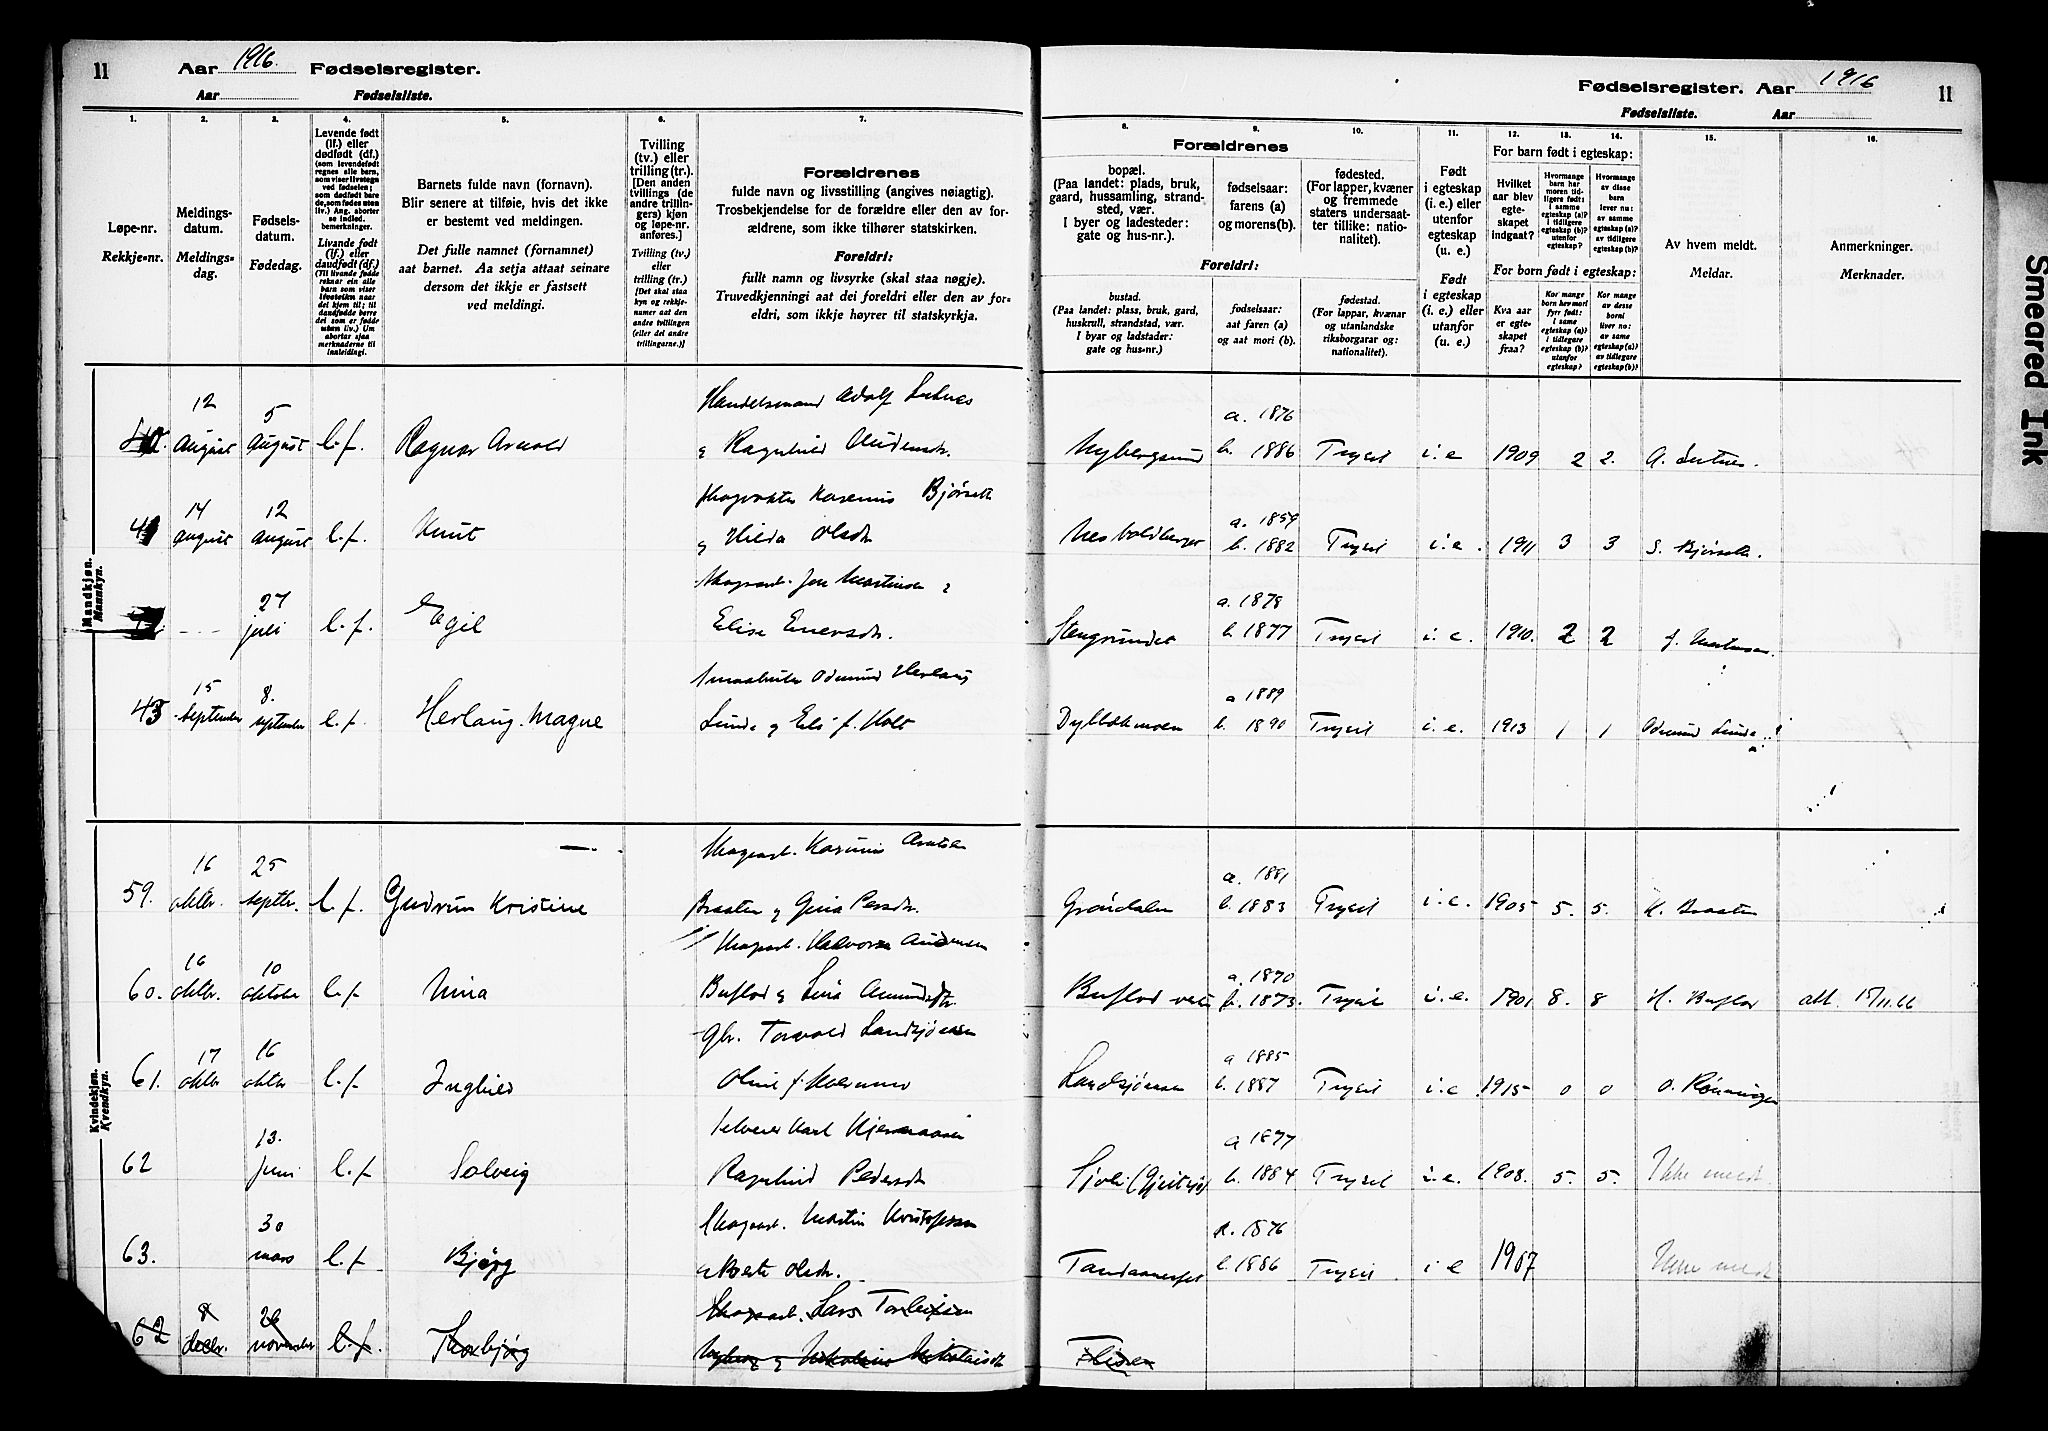 11
Aar 1916. Fødselsregister.
Aar Fødselsliste.
Fødselsregister. Aar 1916
11
Fødselsliste. Aar
1. 2. 3. 4. 5. 6. 7.
8. 9. 10. 11. 12. 13. 14. 15. 16.
Løpe-nr.
Rekkje-nr.
Meldings-
datum.
Meldings-
dag.
Fødsels-
datum.
Fødedag.
Levende født
(lf.) eller
dødfødt (df.)
(som levendefødt
regnes alle barn,
som viser livstegn
ved fødselen;
som dødfødt bare
de, som fødes uten
liv.) Ang. aborter
se indled.
bemerkninger.
Livande født
(lf.) eller
daudfødt (df.)
(Til livande fødde
reknar ein alle
barn som viser
livsteikn naar
dei kjem til; til
daudfødde berre
dei som er fødde
utan liv.) Um
abortar sjaa
merknaderne til
innleidingi.
Barnets fulde navn (fornavn).
Blir senere at tilføie, hvis det ikke
er bestemt ved meldingen.
Det fulle namnet (fornamnet)
aat barnet. Aa setja attaat seinare
dersom det ikkje er fastsett
ved meldingi.
Tvilling
(tv.) eller
trilling (tr.).
[Den anden
tvillings (de
andre trillin-
gers) kjøn
og løpe-nr.
anføres.]
Tvilling (tv.)
eller
trilling (tr.)
[Det skal staa
kyn og rekkje-
numer aat den
andre tvillingen
(eller dei andre
trillingarne.)]
Forældrenes
fulde navn og livsstilling (angives nøiagtig).
Trosbekjendelse for de forældre eller den av for-
ældrene, som ikke tilhører statskirken.
Foreldri:
fullt namn og livsyrke (skal staa nøgje).
Truvedkjenningi aat dei foreldri eller den av for-
eldri, som ikkje høyrer til statskyrkja.
Forældrenes
bopæl.
(Paa landet: plads, bruk,
gaard, hussamling, strand-
sted, vær.
I byer og ladesteder:
gate og hus-nr.).
fødselsaar:
farens (a)
og morens (b).
fødested.
(For lapper, kvæner
og fremmede
staters undersaat-
ter tillike: natio-
nalitet).
Foreldri:
bustad.
(Paa landet: plass, bruk, gard,
huskrull, strandstad, vær.
I byar og ladstader:
gate og hus-nr.)
fødselsaar:
aat faren (a)
og aat mori (b).
fødestad.
(For lappar, kvænar
og utanlandske
riksborgarar og:
nationalitet).
Født
i egteskap
(i. e.) eller
utenfor
egteskap
(u. e.)
Født
i egteskap
(i. e.) eller
utanfor
(u. e.)
For barn født i egteskap:
Hvilket
aar blev
egte-
skapet
indgaat?
Hvormange
barn har
moren tid-
ligere født:
i samme
egteskap (a)?
i tidligere
egteskap (b)?
utenfor
egteskap?
Hvormange
av disse
barn
lever nu:
av samme
egteskap (a)?
av tidligere
egteskap (b)?
For born født i egteskap:
Kva aar
er egte-
skapet
fraa?
Kor mange
born hev mori
fyrr født:
i same
egteskap (a)?
i tidlegare
egteskap (b)?
utanfor
egteskap?
Kor mange
av desse
borni
liver no:
av same
egteskap (a)?
av tidlegare
egteskap (b)?
Av hvem meldt.
Meldar.
Anmerkninger.
Merknader.
Mandkjøn.
Mannkyn.
12 August 5 August l.f. Ragnar Arnold
Handelsmand Adolf
& Ragnhild
Nybergsund a. 1876 b. 1886 Trysil i.e 1909 2 2. A.
41 14 august 12 august l.f. Knut
Bjørseth
& Hilda Olsdtr
a. 1859 b. 1882 Trysil i.e. 1911 3 3 S. Bjørseth.
27 juli l.f. Egil
Skogsarb. Jon Martinsen &
Elise Enersdtr.
Stengrundet a. 1878 b. 1877 Trysil i.e. 1910. 2 2 J. Martinsen.
43 15 September 8. september l.f. Herlaug Magne
Odmund Herlaug
Lunde & Elis f. Holt
a 1889 b. 1890 Trysil i.e. 1913 1 1 Odmund Lunde
Kvindekjøn.
Kvendkyn.
59. 16 oktbr. 25 septbr. l.f. Gudrun Kristine
Skogsarb.
Braaten & Gina Persdtr.
Grøndalen a. 1881 b. 1883 Trysil i.e. 1905 5. 5. K. Braaten
60. 16 oktbr. 10 oktober l.f. Nina
Skogsarb. Halvor
Buflod & Lina Amundsdtr.
Buflod a. 1870 b. 1873. Trysil i.e. 1901 8. 8 H. Buflod att. 15/11.66
61. 17 oktbr 16 oktbr l.f. Inghild
Gbr. Torvald Landsjøaasen
Oline f.
Landsjøaasen a 1885 b. 1887 Trysil i.e 1915 0 0 O. Rønningen
62 13. juni l.f. Solveig
Selveier Karl
Ragnhild Pedersdtr
a 1877 b. 1884 Trysil i.e. 1908. 5. 5. Ikke meldt.
63. 30 mars l.f. Bjørg
Skogsarb. Martin Kristofersen
& Olsdtr.
a. 1876 b. 1886 Trysil i e 1907 Ikke meldt
62 8 decbr. 26 november l.f. Thorbjørg
Skogsarb. Lars Torleifsen
Nyberg & Nikolaisdtr
Flisen
Smeared Ink